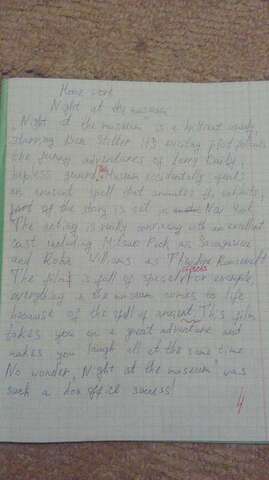 Home work
Night at the museum
"Night at the museum is a brilliant comedy
starring Ben Stiller. It's exciting plot follows
the funny adventures of Larry Daily,
hapless guard. The human accidentally
an ancient spell that animates the exhibits,
part of the story is set in New York
The acting is really convincing with an excellent
cast including Mizuo Peck as Sacagawea
and Robin Williams as Theodore Roosevelt
The film is full of special effects for example,
everything in the museum comes to life
because of the spell of ancient. This film
takes you on a great adventure and
makes you laugh all at the same time
No wonder, "Night at the museum" was
such a box office success!
4